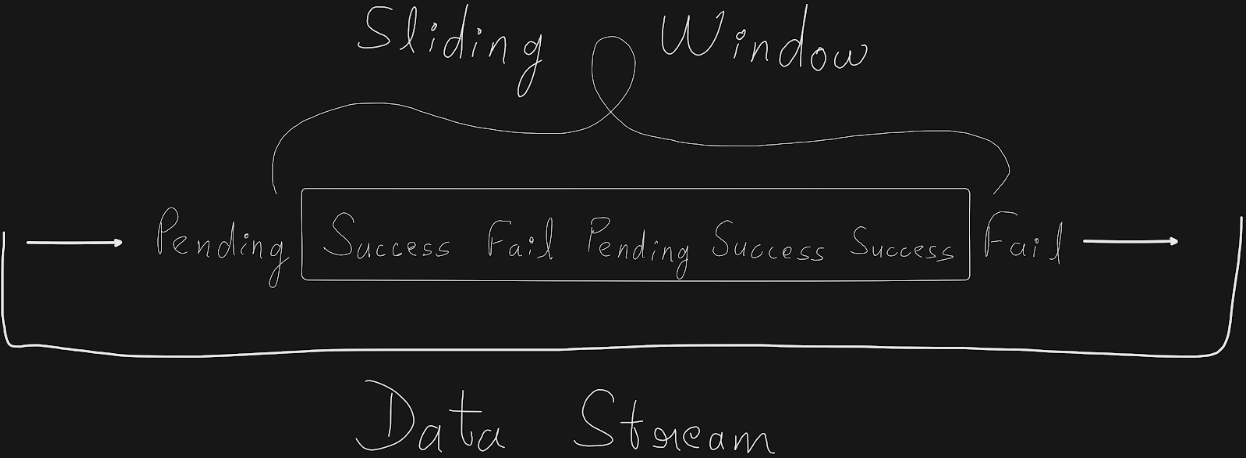 Sliding Window
Pending Success Fail Pending Success Success Fail
Data Stream